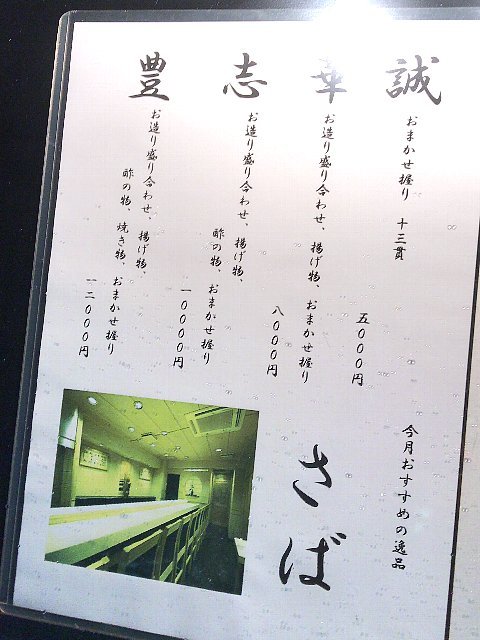 誠
おまかせ握り 十三貫
五〇〇〇円
華
お造り盛り合わせ、揚げ物、おまかせ握り
八〇〇〇円
志
お造り盛り合わせ、揚げ物、
酢の物、おまかせ握り
一〇〇〇〇円
豊
お造り盛り合わせ、揚げ物、
酢の物、焼き物、おまかせ握り
一二〇〇〇円
今月おすすめの逸品
さば